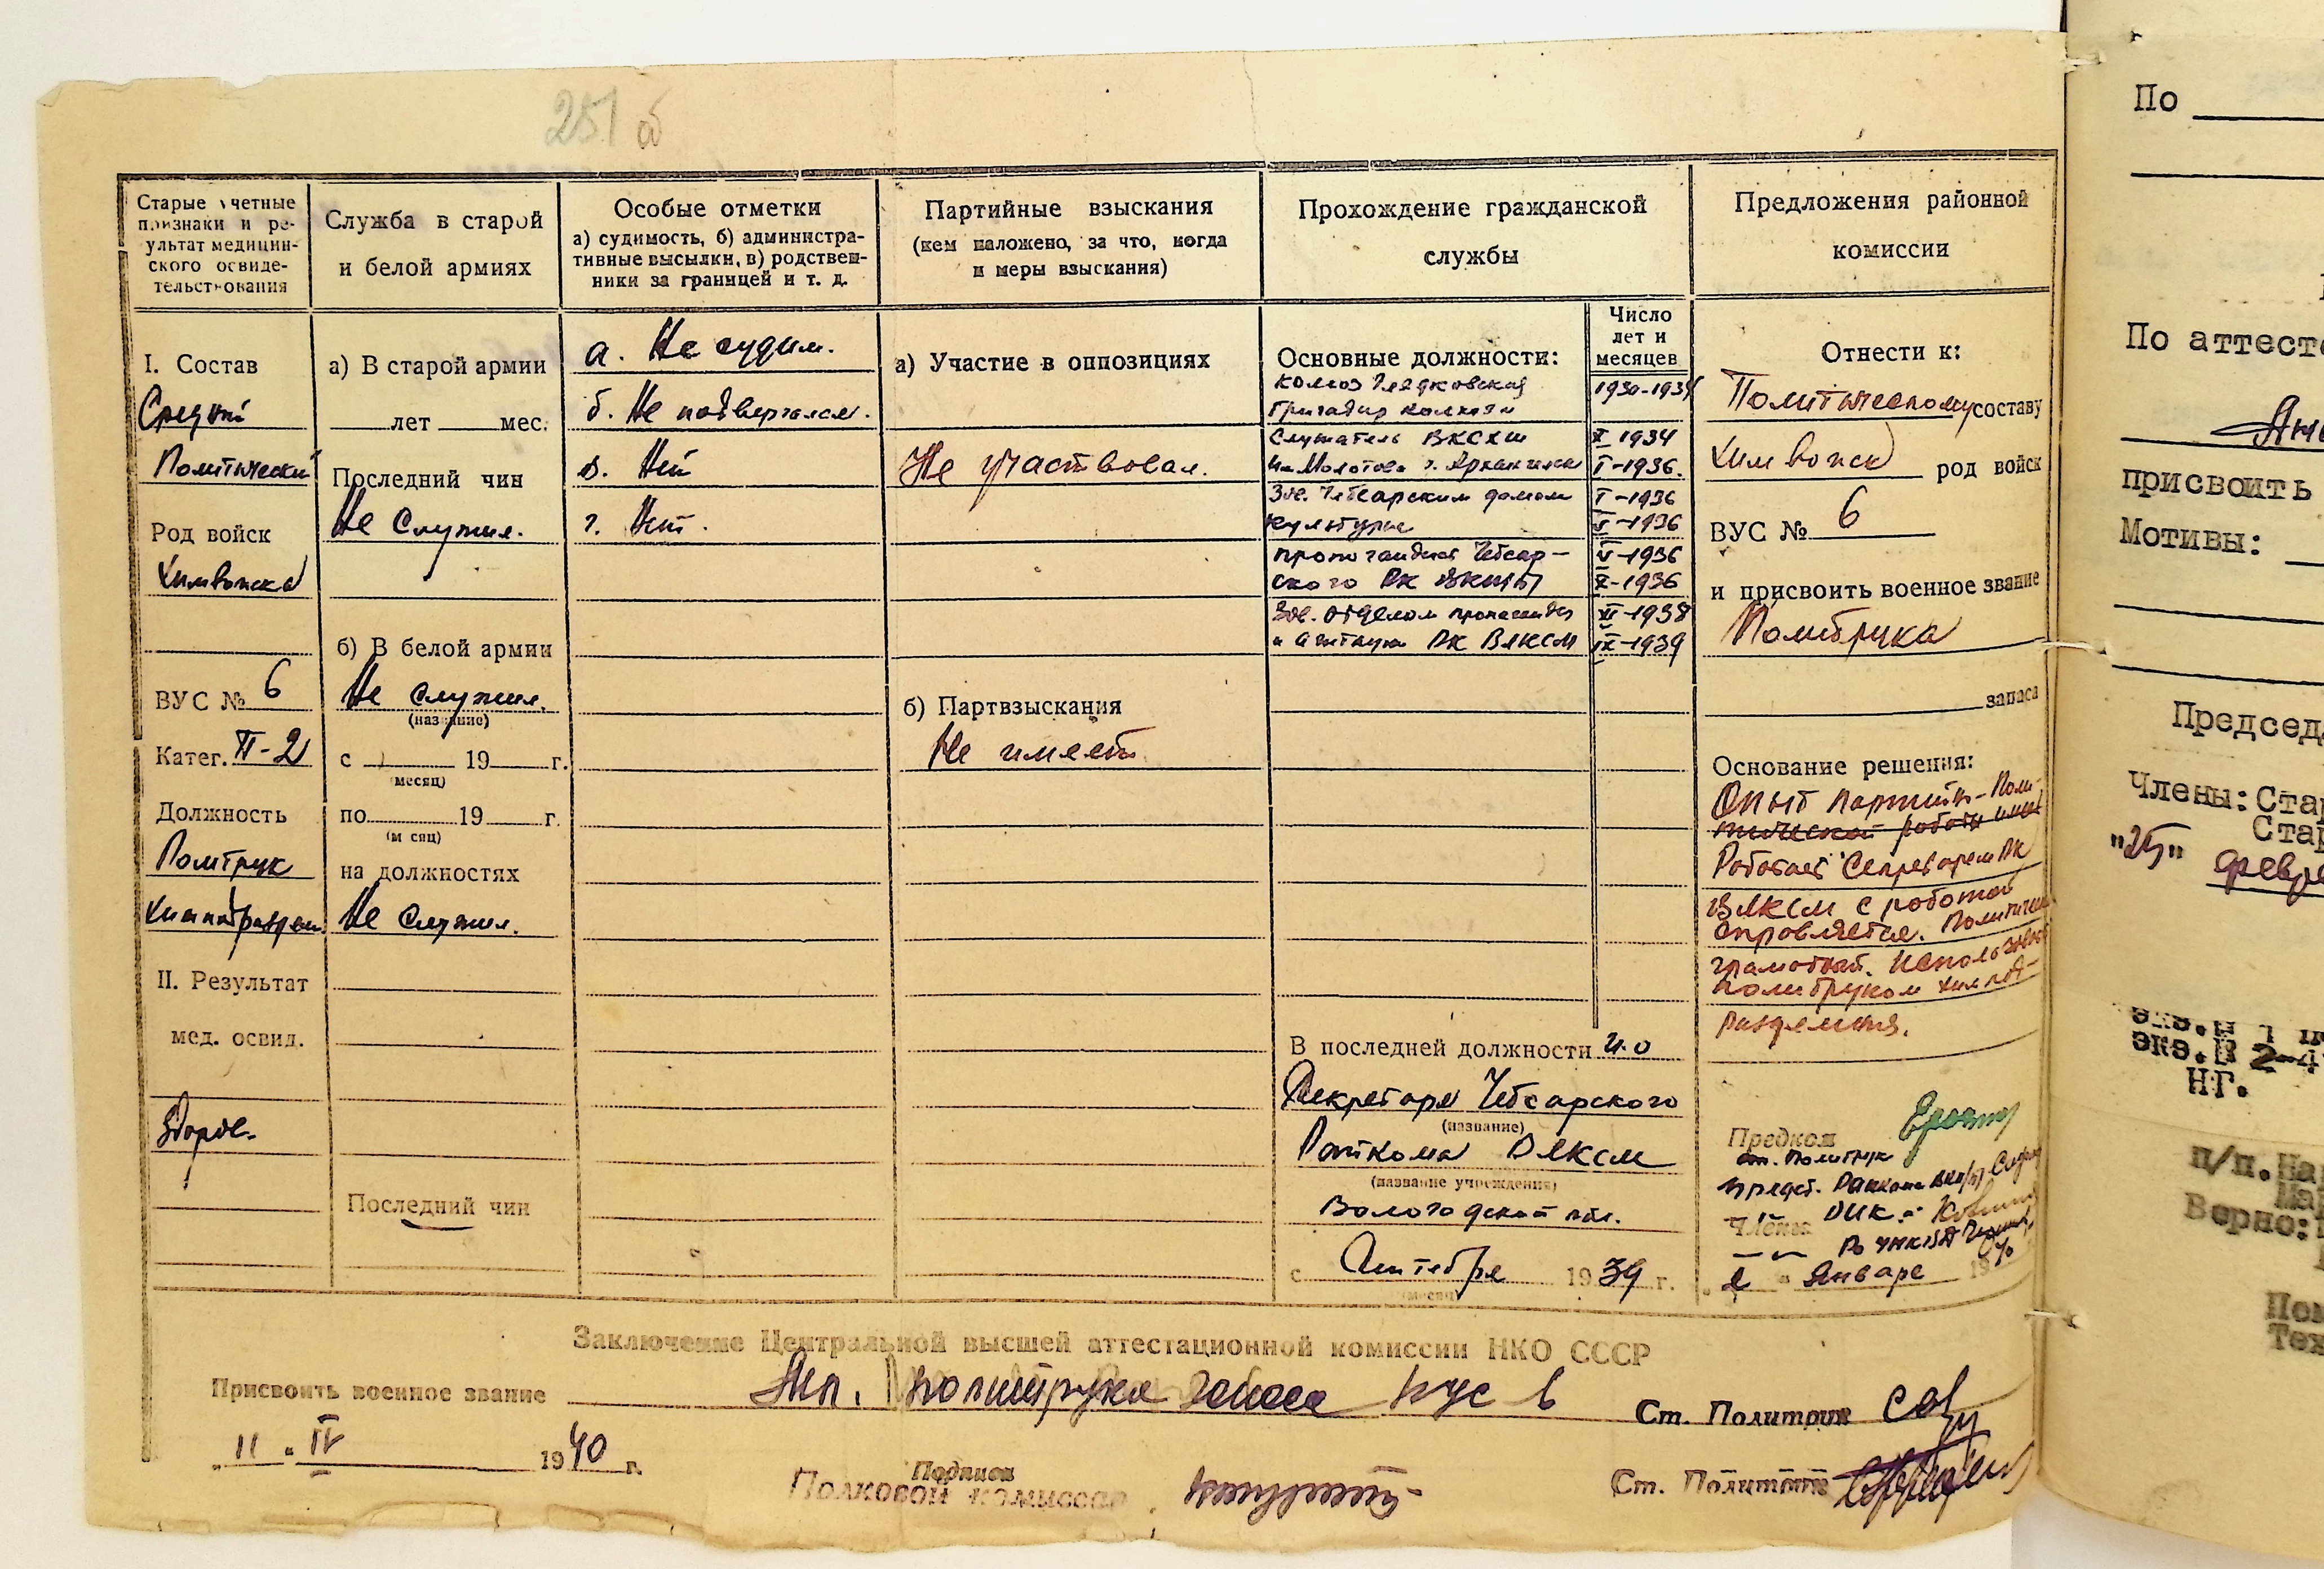 251 б
Старые учетные
признаки и ре-
зультат медицин-
ского освиде-
тельствования
Служба в старой
и белой армиях
Особые отметки
а) судимость, б) администра-
тивные высылки, в) родствен-
ники за границей и т. д.
Партийные взыскания
(кем наложено, за что, когда
и меры взыскания)
Прохождение гражданской
службы
Предложения районной
комиссии
I. Состав
Средний
Политический
Род войск
Химвойска
ВУС № 6
Катег. II-2
Должность
Политрук
II. Результат
мед. освид.
Здоров.
а) В старой армии
лет мес.
Последний чин
Не Служил.
б) В белой армии
Не Служил.
(название)
с 19 г.
(месяц)
по 19 г.
(м сяц)
на должностях
Не Служил.
Последний чин
а. Не судим.
б. Не подвергался.
в. Нет
г. Нет.
а) Участие в оппозициях
Не участвовал.
б) Партвзыскания
Не имеет
Основные должности:
Число
лет и
месяцев
колхоз
бригадир колхоза
1930-1934
Слушатель ВКСХШ
X 1934
им Молотова г. Архангельск
I-1936.
Зав. Чебсарским домом
I-1936
культуры
V-1936
пропагандист Чебсар-
V-1936
ского РК ВКП(б)
X-1936
Зав. отделом пропаганды
XI-1938
и агитации РК ВЛКСМ
IX-1939
В последней должности и.о
Секретаря Чебсарского
(название)
Райкома ВЛКСМ
(название учреждения)
Вологодской обл.
с Сентября 1939 г.
(месяц)
Отнести к:
Политическому составу
Химвойск род войск
ВУС № 6
и присвоить военное звание
Политрука
запаса
Основание решения:
Опыт партийно-поли
тической работы имеет
Работает Секретарем РК
ВЛКСМ с работой
справляется. Политически
грамотный. Использовать
политруком хим под-
разделения.
Предком
ст. Политрук
предст. Райкома ВКП(б)
Члены РИК
Января 1940
Заключение Центральной высшей аттестационной комиссии НКО СССР
Присвоить военное звание Мл. Политрука запаса ВУС 6
Ст. Политрук
„11“ IV 1940 г.
Подписи
Полковой комиссар
Ст. Политрук
По
По аттест
присвоить
Мотивы:
Председ
Члены: Ста
Ста
"25" февр
экз. № 1
экз. № 2-4
НГ.
п/п. На
Ма
Верно:
Пом
Тех